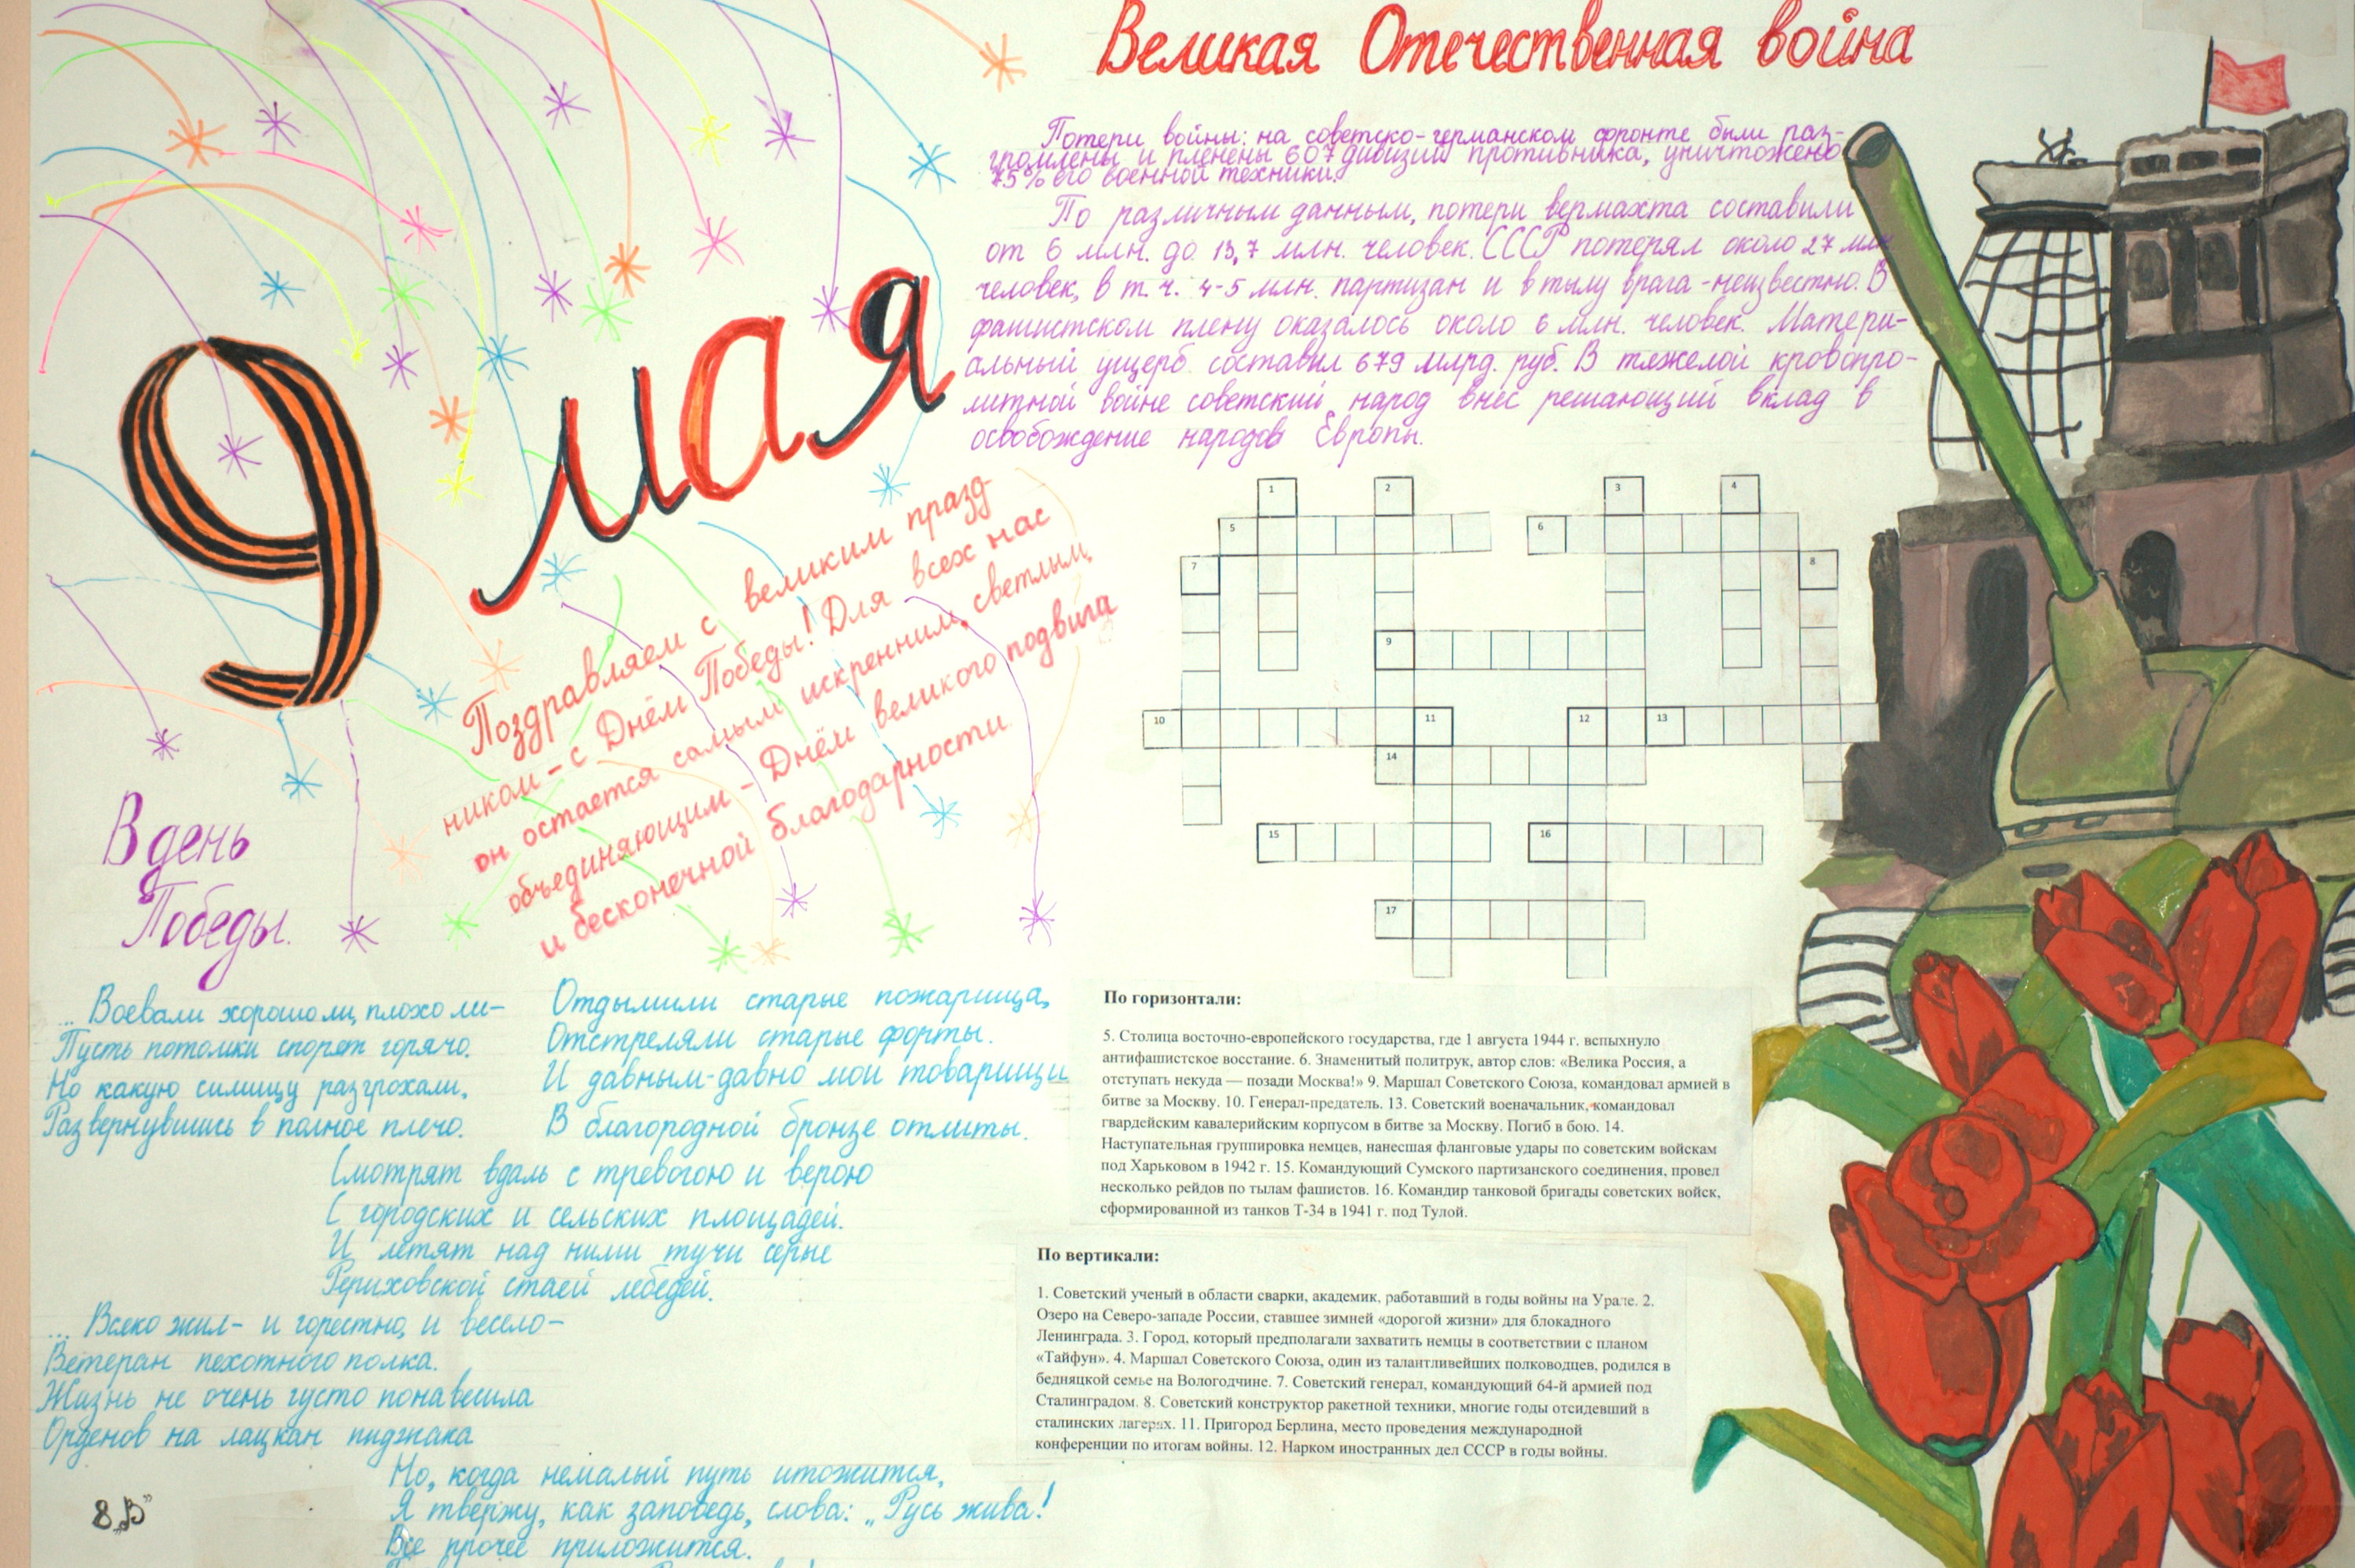 9 мая
Поздравляем с великим празд-
ником - с Днём Победы! Для всех нас
он остается самым искренним, светлым,
объединяющим - Днём великого подвига
и бесконечной благодарности
В день
Победы.
... Воевали хорошо ли, плохо ли -
Пусть потомки спорят горячо.
Но какую силищу разгрохали,
Развернувшись в полное плечо.
Отдымили старые пожарища,
Отстреляли старые форты.
И давным-давно мои товарищи
В благородной бронзе отлиты.
Смотрят вдаль с тревогою и верою
С городских и сельских площадей.
И летят над ними тучи серые
Рериховской стаей лебедей.
... Всяко жил - и горестно, и весело -
Ветеран пехотного полка.
Жизнь не очень густо понавесила
Орденов на лацкан пиджака
Но, когда немалый путь итожится,
Я твержу, как заповедь, слова: „Русь жива!
Все прочее приложится.
8„В”
Великая Отечественная война
Потери войны: на советско-германском фронте были раз-
громлены и пленены 607 дивизий противника, уничтожено
75% его военной техники.
По различным данным, потери вермахта составили
от 6 млн. до 13,7 млн. человек. СССР потерял около 27 млн
человек, в т. ч. 4-5 млн. партизан и в тылу врага - неизвестно. В
фашистском плену оказалось около 6 млн. человек. Матери-
альный ущерб составил 679 млрд. руб. В тяжелой кровопро-
литной войне советский народ внёс решающий вклад в
освобождение народов Европы.
1 2 3 4
5 6
7 8
9
10 11 12 13
14
15 16
17
По горизонтали:
5. Столица восточно-европейского государства, где 1 августа 1944 г. вспыхнуло
антифашистское восстание. 6. Знаменитый политрук, автор слов: «Велика Россия, а
отступать некуда — позади Москва!» 9. Маршал Советского Союза, командовал армией в
битве за Москву. 10. Генерал-предатель. 13. Советский военачальник, командовал
гвардейским кавалерийским корпусом в битве за Москву. Погиб в бою. 14.
Наступательная группировка немцев, нанесшая фланговые удары по советским войскам
под Харьковом в 1942 г. 15. Командующий Сумского партизанского соединения, провел
несколько рейдов по тылам фашистов. 16. Командир танковой бригады советских войск,
сформированной из танков Т-34 в 1941 г. под Тулой.
По вертикали:
1. Советский ученый в области сварки, академик, работавший в годы войны на Урале. 2.
Озеро на Северо-западе России, ставшее зимней «дорогой жизни» для блокадного
Ленинграда. 3. Город, который предполагали захватить немцы в соответствии с планом
«Тайфун». 4. Маршал Советского Союза, один из талантливейших полководцев, родился в
бедняцкой семье на Вологодчине. 7. Советский генерал, командующий 64-й армией под
Сталинградом. 8. Советский конструктор ракетной техники, многие годы отсидевший в
сталинских лагерях. 11. Пригород Берлина, место проведения международной
конференции по итогам войны. 12. Нарком иностранных дел СССР в годы войны.